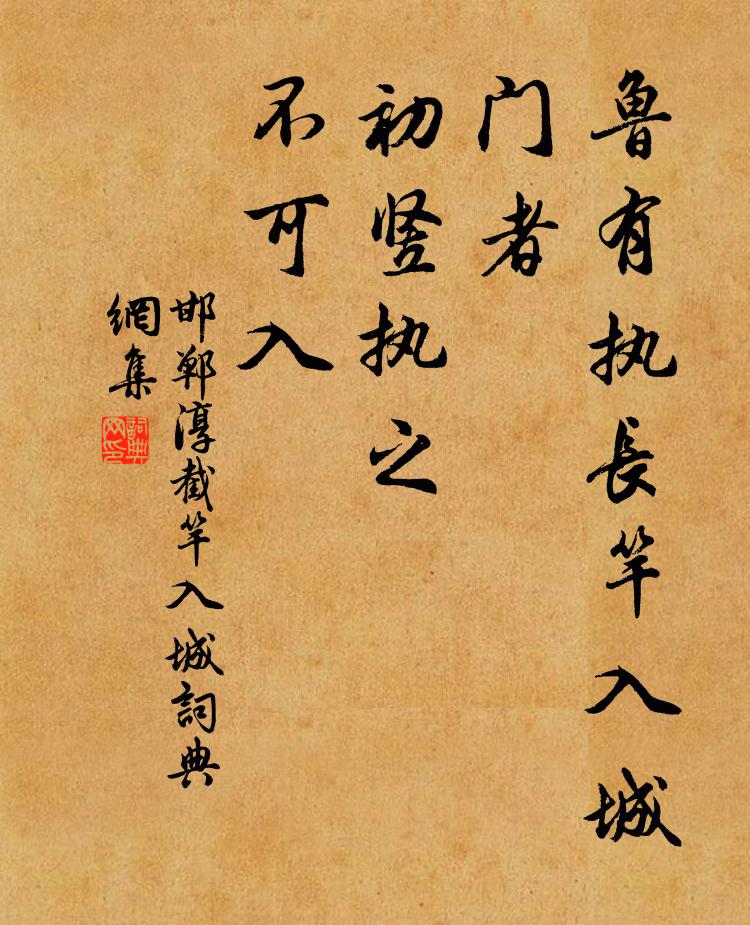 鲁有执長竿入城
门者
初竖执之
不可入
邯鄲淳截竿入城詞典
網集
詞典
网印